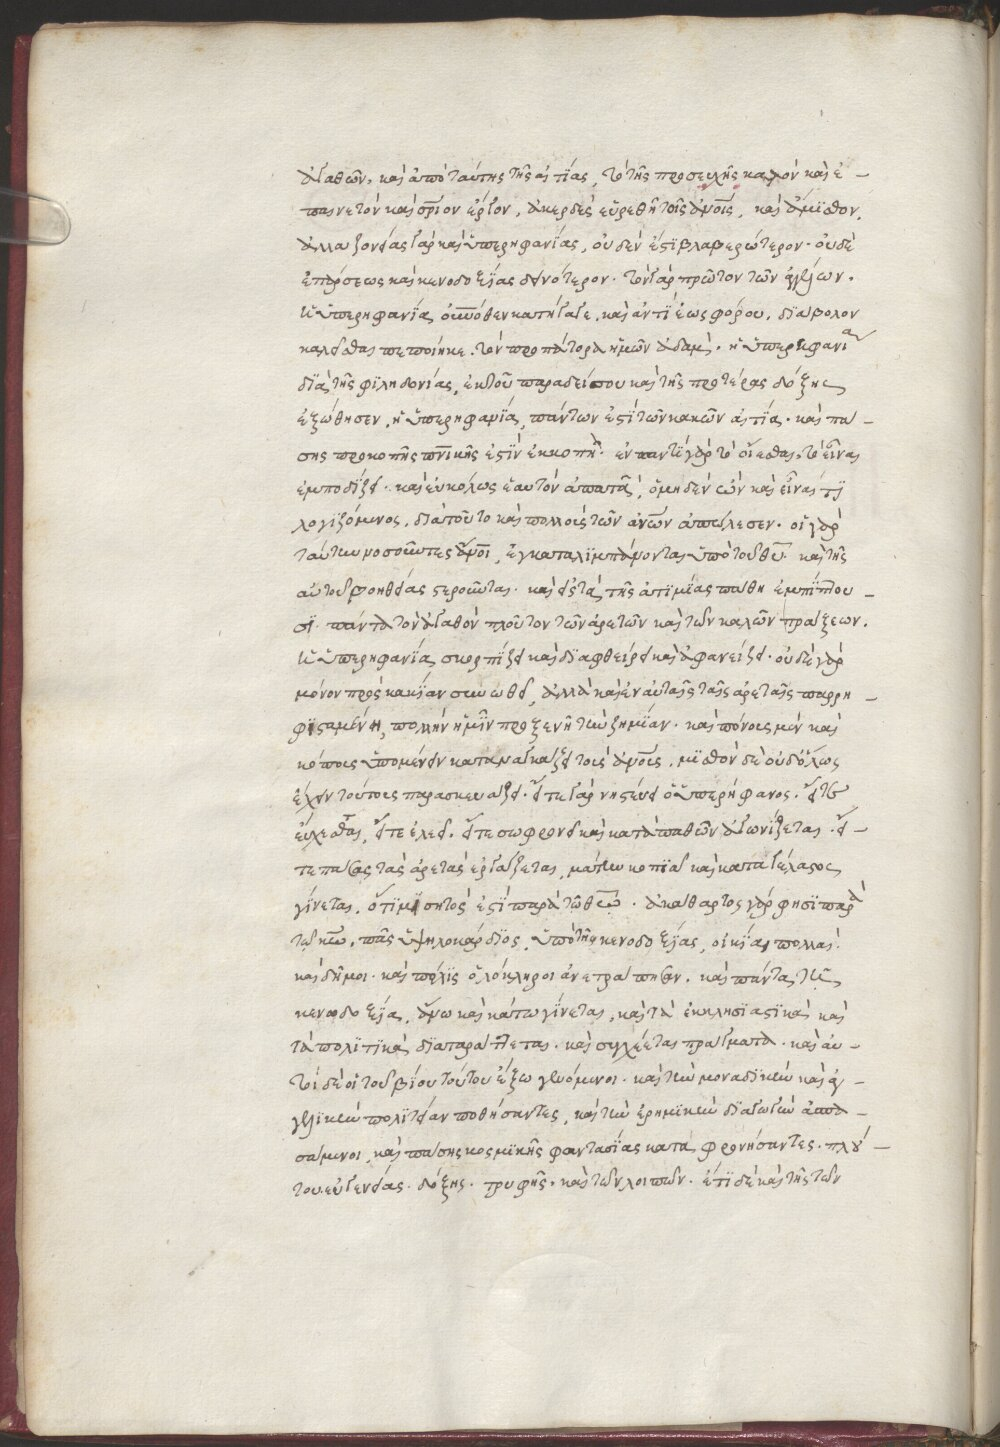 ἀγαθῶν, καὶ ἀπὸ ταύτης τῆς αἰτίας, τὸ τῆς προσευχῆς καλὸν καὶ ἐ-
παινετὸν καὶ σπιον ἔργον, ἀκερδὲς εὑρεθῆ τοῖς ἀνοις, καὶ ἄμισθον.
ἀλλαζονείας γὰρ καὶ ὑπερηφανίας, οὐδὲν ἐστὶ βλαβερώτερον. οὐδὲ
ἐπάρσεως καὶ κενοδοξίας δεινότερον. τὸν γὰρ πρῶτον τῶν ἀγγέλων.
ἡ ὑπερηφανία οὐρανόθεν κατήγαγε, καὶ ἀντὶ ἑωσφόρου, διάβολον
καλεῖσθαι πεποίηκε. τὸν προπάτορα ἡμῶν ἀδὰμ. ἡ ὑπερηφανία
διὰ τῆς φιληδονίας, ἐκ τοῦ παραδείσου καὶ τῆς προτέρας δόξης
ἐξώθησεν, ἡ ὑπερηφανία, πάντων ἐστὶ τῶν κακῶν αἰτία. καὶ πά-
σης προκοπῆς πνικῆς ἐστὶν ἐκκοπή. ἐν παντὶ γὰρ τὸ οἴεσθαι, τὸ εἶναι
ἐμποδίζει. καὶ εὐκόλως ἑαυτὸν ἀπατᾶ, ὁ μηδὲν ὢν καὶ εἶναι τὶ
λογιζόμενος, διὰ τοῦτο καὶ πολλοὺς τῶν ἀνων ἀπώλεσεν. οἱ γὰρ
ταύτην νοσοῦντες ἄνοι, ἐγκαταλιμπάνονται ὑπὸ τοῦ θυ. καὶ τῆς
αὐτοῦ βοηθείας στεροῦνται. καὶ εἰς τὰ τῆς ἀτιμίας πάθη ἐμπίπτου-
σι. πάντα τὸν ἀγαθὸν πλοῦτον τῶν ἀρετῶν καὶ τῶν καλῶν πράξεων.
ἡ ὑπερηφανία σκορπίζει καὶ διαφθείρει καὶ ἀφανείζει. οὐδὲ γὰρ
μόνον πρὸς κακίαν συνωθεῖ, ἀλλὰ καὶ ἐν αὐταῖς ταῖς ἀρεταῖς παρρη-
φισαμένη, πολλὴν ἡμῖν προξενῆ τὴν ζημίαν. καὶ πόνοις μὲν καὶ
κόποις ὑπομένειν καταναγκάζει τοὺς ἀνους, μισθὸν δὲ οὐδόλως
ἔχειν τούτους παρασκευάζει. εἴτε γὰρ νηστεύει ὁ ὑπερήφανος. εἴτε
εὔχεται, εἴτε ἐλεεῖ. εἴτε σωφρονεῖ καὶ κατὰ παθῶν ἀγωνίζεται. εἴ-
τε πάσας τὰς ἀρετὰς ἐργάζεται, μάτην κοπιᾶ καὶ καταγέλαστος
γίνεται. ὅτι μισητὸς ἐστὶ παρὰ τῷ θεῷ. ἀκάθαρτος γὰρ φησὶ παρὰ
τῷ κω, πᾶς ὑψηλοκάρδιος, ὑπὸ τῆς κενοδοξίας, οἰκίαι πολλαὶ.
καὶ δῆμοι. καὶ πόλις ὁλόκληροι ἀνετράπησαν. καὶ πάντα τῆ
κενοδοξία, ἄνω καὶ κάτω γίνεται, καὶ τὰ ἐκκλησιαστικὰ καὶ
τὰ πολιτικὰ διαταράττεται. καὶ συγχέεται πράγματα. καὶ αὐ-
τοὶ δὲ οἱ τοῦ βίου τούτου ἔξω γενόμενοι. καὶ τὴν μοναδικὴν καὶ ἀγ-
γελικὴν πολιτείαν ποθήσαντες, καὶ τὴν ἐρημικὴν διαγωγὴν ἀσπα-
σάμενοι, καὶ πάσης κοσμικῆς φαντασίας καταφρονήσαντες. πλού-
του. εὐγενείας. δόξης. τρυφῆς. καὶ τῶν λοιπῶν. ἔτι δὲ καὶ τῆς τῶν